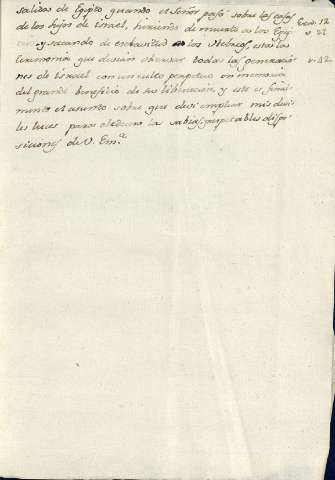 salida de Egipto quando el Señor pasó sobre las casas Exod. 12
de los hijos de Israel, hiriendo de muerte a los Egip v. 27
cios y sacando de esclavitud a los Hebreos, esta es la
ceremonia que devian observar todas las generacio v. 42
nes de Israel con un culto perpetuo en memoria
del grande beneficio de su liberacion, y este es final
mente el asunto sobre que devi emplear mis devi
les luces para obedecer la sabias respetables dispo
siciones de V. Em.ª